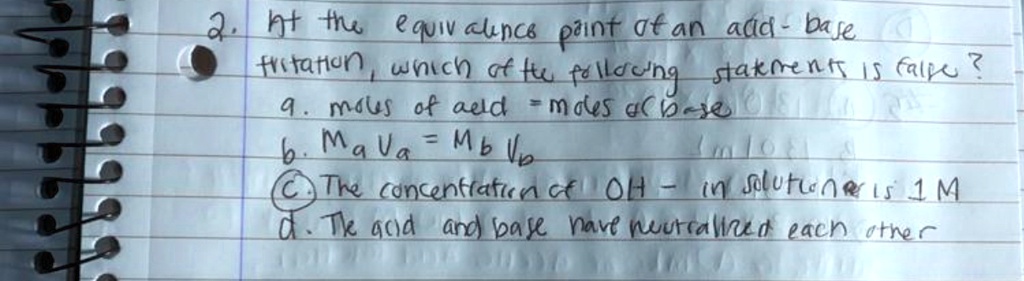 2. At the equivalence point of an acid-base
titration, which of the following statements is false?
a. moles of acid = moles of base
b. Ma Va = Mb Vb
c. The concentration of OH - in solution is 1 M
d. The acid and base have neutralized each other